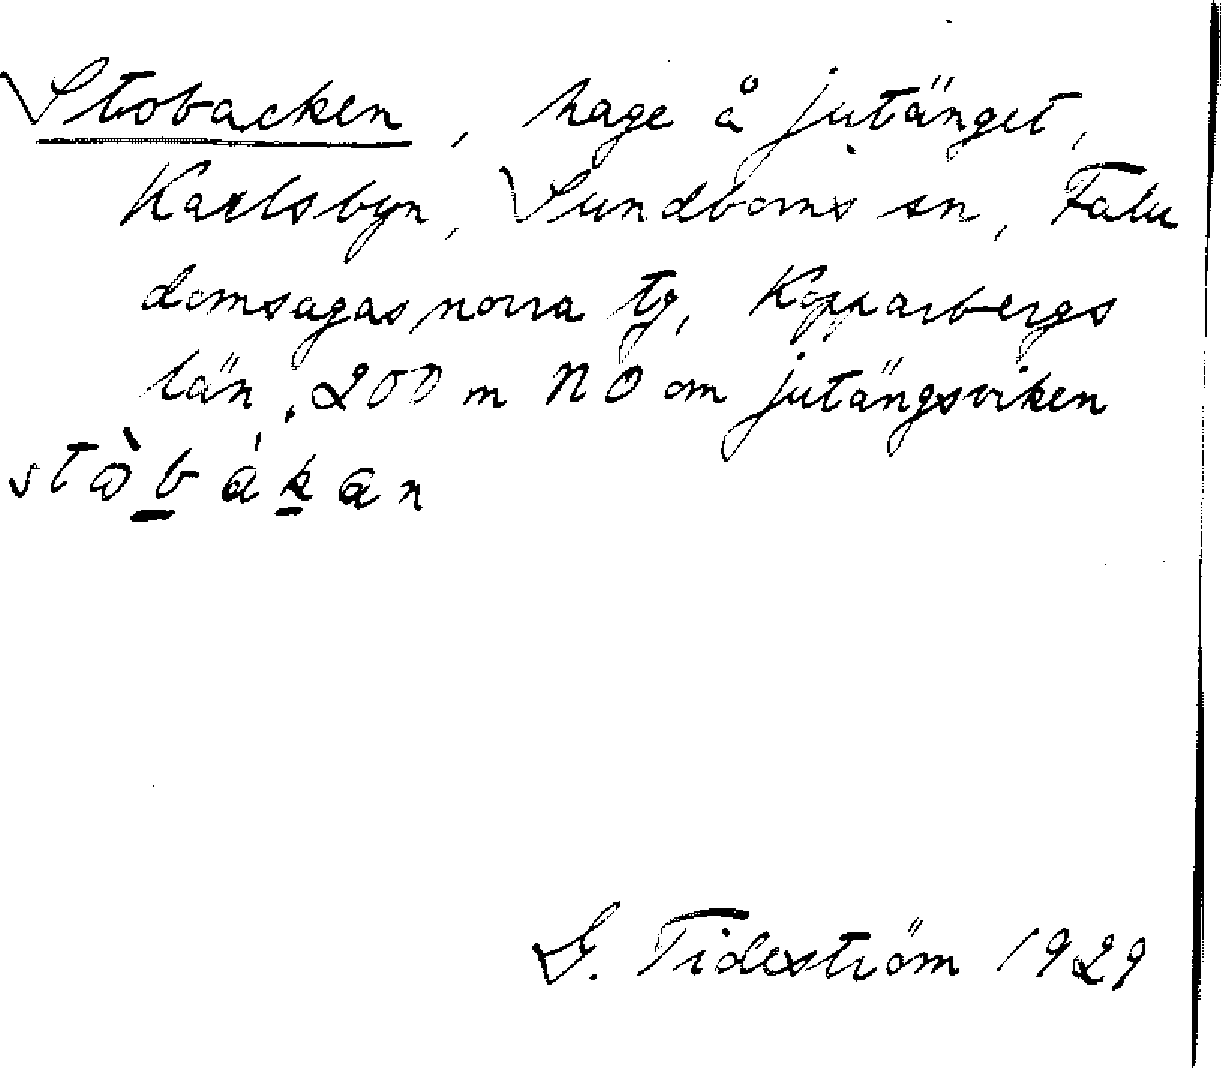 Stobacken, hage å jutänget,
Karlsbyn, Sundborns sn, Falu
domsagas norra tg, Kopparbergs
län. 200 m NO om jutängsviken
G. Tideström 1929